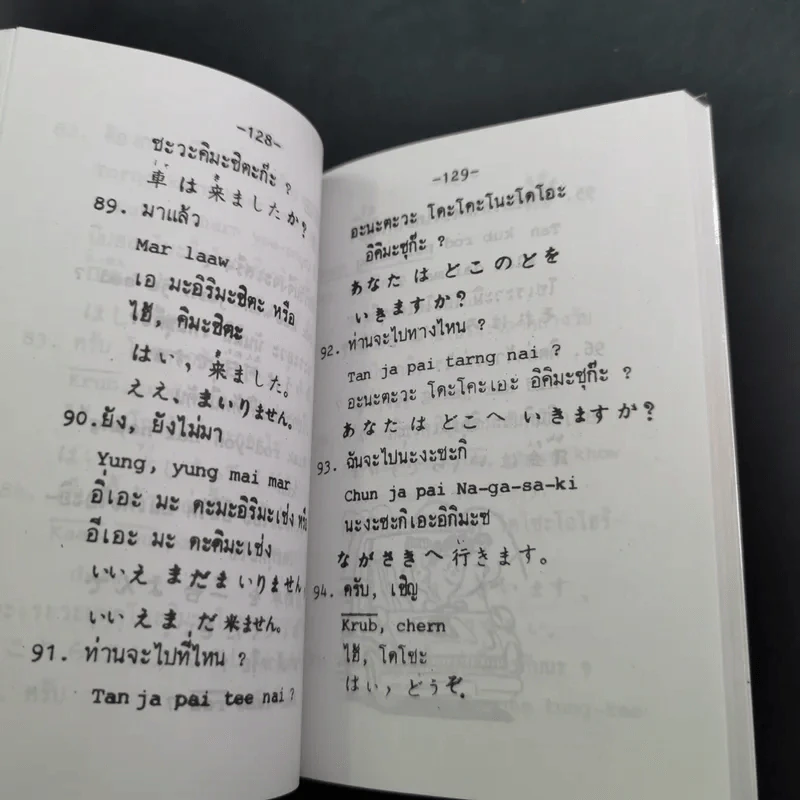 -128-
ซะวะคิมะชิตะก๊ะ ?
車は来ましたか?
89. มาแล้ว
Mar laaw
เอ มะอิริมะชิตะ หรือ
ไฮ้, คิมะชิตะ
はい, 来ました。
ええ、まいりません。
90. ยัง, ยังไม่มา
Yung, yung mai mar
อี๋เอะ มะ ดะมะอิริมะเซ่ง หรือ
อีเอะ มะ ดะคิมะเซ่ง
いいえ まだまいりません
いいえ まだ 来ません。
91. ท่านจะไปที่ไหน ?
Tan ja pai tee nai ?
-129-
อะนะตะวะ โดะโคะโนะโตโอะ
อิคิมะซุก๊ะ ?
あなた は どこ のとを
いきますか?
92. ท่านจะไปทางไหน ?
Tan ja pai tarng nai ?
อะนะตะวะ โดะโคะเอะ อิคิมะซุก๊ะ ?
あなた は どこへ いきますか?
93. ฉันจะไปนะงะซะกิ
Chun ja pai Na-ga-sa-ki
นะงะซะกิเอะอิกิมะซ
ながさきへ 行きます。
94. ครับ, เชิญ
Krub, chern
ไฮ้, โดโซะ
はい, どうぞ.